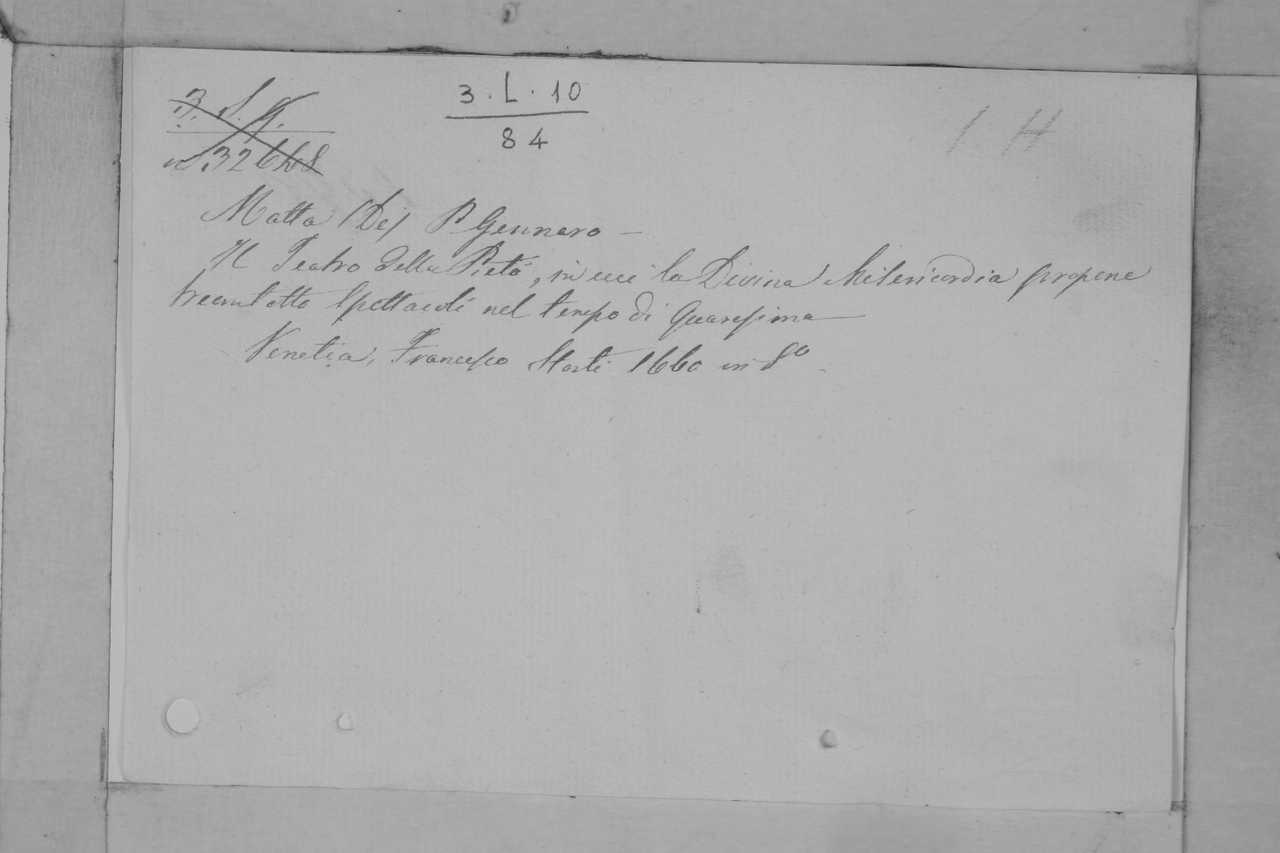 3. S. K.
n.° 32668
3. L. 10
84
1 H
Matta (De) P. Gennaro —
Il Teatro della Pietà, in cui la Divina Misericordia propone
trecentotto spettacoli nel tempo di Quaresima —
Venetia, Francesco Storti 1660 in 8°